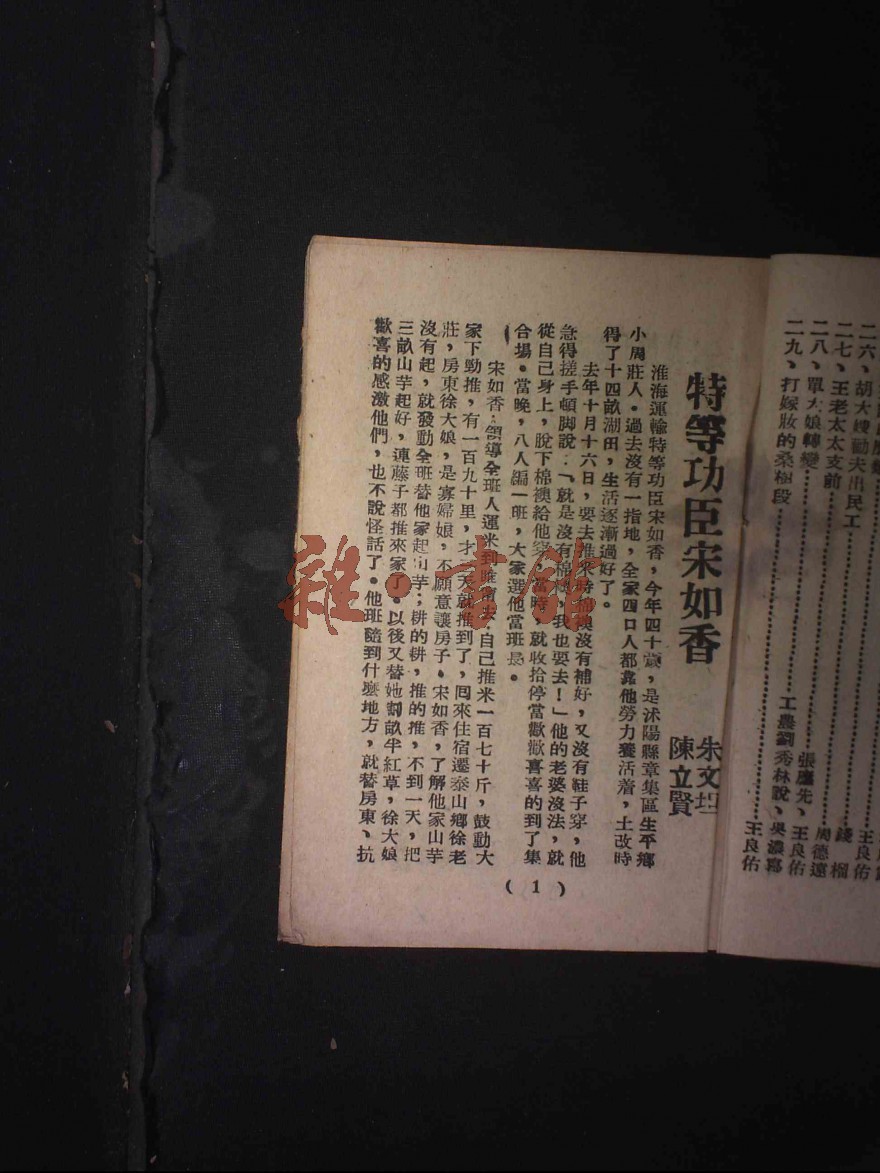 二六、胡大嫂勸夫出民工……王良佑
二七、王老太太支前……錢榴
二八、單大娘轉變……周德遠
二九、打嫁妝的桑樹段……張應先、王良佑
工農劉秀林說，吳濃寫
王良佑
特等功臣宋如香
朱文坦
陳立賢
淮海運輸特等功臣宋如香，今年四十歲，是沭陽縣章集區生平鄉
小周莊人。過去沒有一指地，全家四口人都靠他勞力養活着，土改時
得了十四畝湖田，生活逐漸過好了。
去年十月十六日，要去推來時棉襖沒有補好，又沒有鞋子穿，他
急得搓手頓脚說：「就是沒有棉襖，我也要去！」他的老婆沒法，就
從自己身上，脫下棉襖給他穿，當時，就收拾停當歡歡喜喜的到了集
合場。當晚，八人編一班，大家選他當班長。
宋如香，領導全班人運米到睢寧去，自己推米一百七十斤，鼓動大
家下勁推，有一百九十里，才天就推到了，囘來住宿遷泰山鄉徐老
莊，房東徐大娘，是寡婦娘，不願意讓房子。宋如香，了解他家山芋
沒有起，就發動全班替他家起山芋；耕的耕，推的推，不到一天，把
三畝山芋起好，連藤子都推來家了。以後又替她割畝半紅草，徐大娘
歡喜的感激他們，也不說怪話了。他班隨到什麼地方，就替房東、抗
(1)
雜·書館